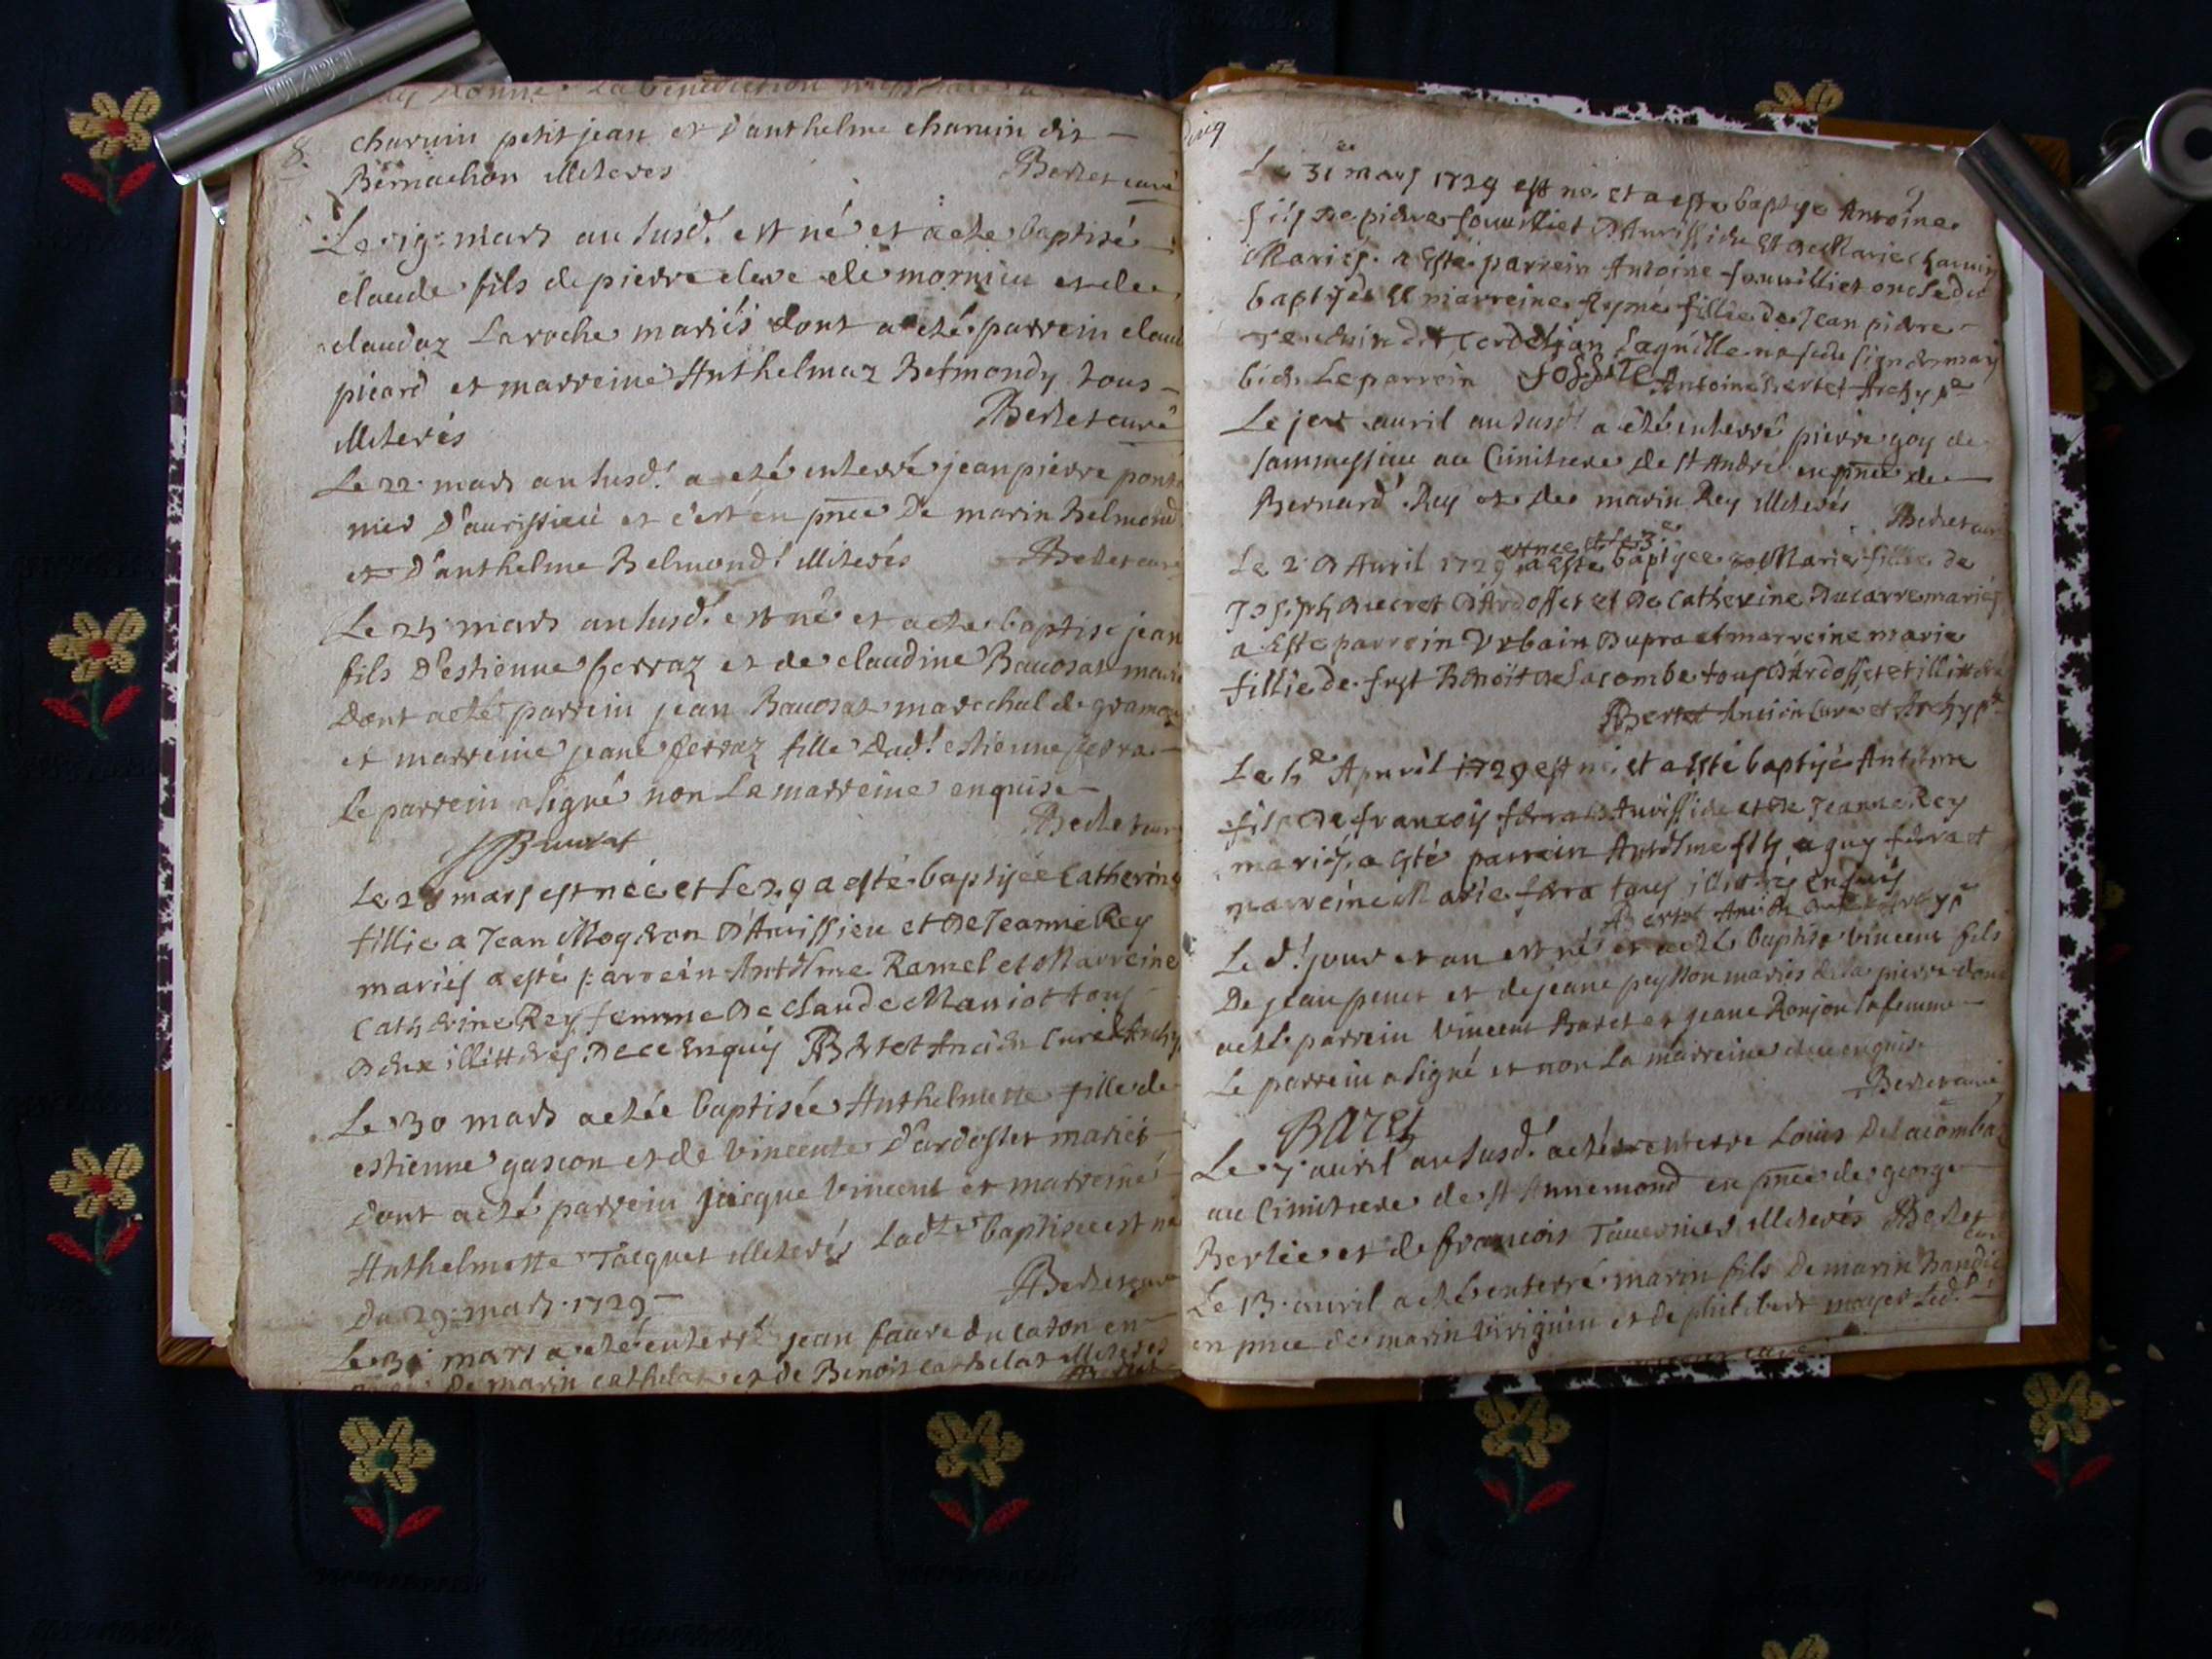 8.
charvin petit jean et d'anthelme charvin dit
Bernachon illiterés Bertet curé
Le 19e mars an susd.t est né et a eté baptisé
claude fils de pierre cleve de mornieu et de
claudaz Laroche mariés dont a eté parrein claud
picard et marreine Anthelmaz Belmondy tous
illiterés Bertet curé
Le 22 mars an susd.t a eté enterré jean pierre pont
nier D'aurissieu et c'est en pnce De marin Belmond
et D'anthelme Belmond.t illiterés Bertet curé
Le 25 mars an susd.t est né et a eté baptisé jean
fils D'estienne ferraz et de claudine Baucosat
Dont a eté parrein jean Baucosat marechal de
et marreine jeane ferraz fille Dud.t estienne
le parrein a signé non La marreine enquise
Bertet cur
Le 28 mars est née et Le 29 a esté baptisée Catherine
fillie a Jean D'Aurissieu et De Jeanne Rey
mariés a esté parrein Antelme Ramel et Marreine
Catherine Rey femme De Claude Maniot tous
Deux illittérés De ce Enquis Bertet Ancien Curé et Archyp
Le 30 mars a etée baptisée Anthelmette fille de
estienne gascon et de vincente D'ardosset mariés
Dont a eté parrein jacque vincent et marreine
Anthelmette Tacquet illiterés Lad.te baptisée est né
Du 29 mars 1729 Bertet curé
Le 31 mars a eté enterré jean faure du caton en
De marin cathelat et de Benoit cathelat illiterés
Le 31 mars 1729 est né et a esté baptyse Antoine
fils De pierre D'Aurissieu Et De Marie Charvin
Mariés. a Esté parrein Antoine oncle du
baptyse Et marreine fillie De Jean pierre
bien Le parrein Antoine Bertet Archypre
Le jer avril an susd.t a eté enterré pierre goy de
au Cimitiere de St André en pnce de
Bernard Rey et de marin Rey illiterés Bertet cur
est née et le 3e
Le 2 D'Avril 1729 a Esté baptysee Marie fillie de
Joseph Ducret D'Ardosset et De Catherine Ducarre mariés
a Esté parrein Urbain Dupra et marreine marie
fillie de fust Benoit De Lacombe tous D'Ardosset et
Bertet Ancien Curé et Archypre
Le Apvril 1729 est né, et a Esté baptisé Antelme
fils De françois ferra D'Aurissieu et De Jeanne Rey
mariés, a esté parrein Antelme fils a guy ferra et
marreine Marie ferra tous Enquis
Bertet Ancien Curé et Archypre
Led.t jour et an est né et a eté baptisé vincent fils
De jean penet et de jeane peysson mariés de la pierre dont
a eté parrein vincent Baret et jeane Ronjon sa femme
Le parrein a signé et non La marreine de ce enquise
Bertet curé
BARET
Le 7 avril an susd.t a eté enterré Louis Delacomba
au Cimitiere de St Annemond en pnce de george
Berlie et de françois Tavernier illiterés Bertet
cur
Le 13 avril a eté enterré marin fils De marin
en pnce de marin viriguin et de philibert